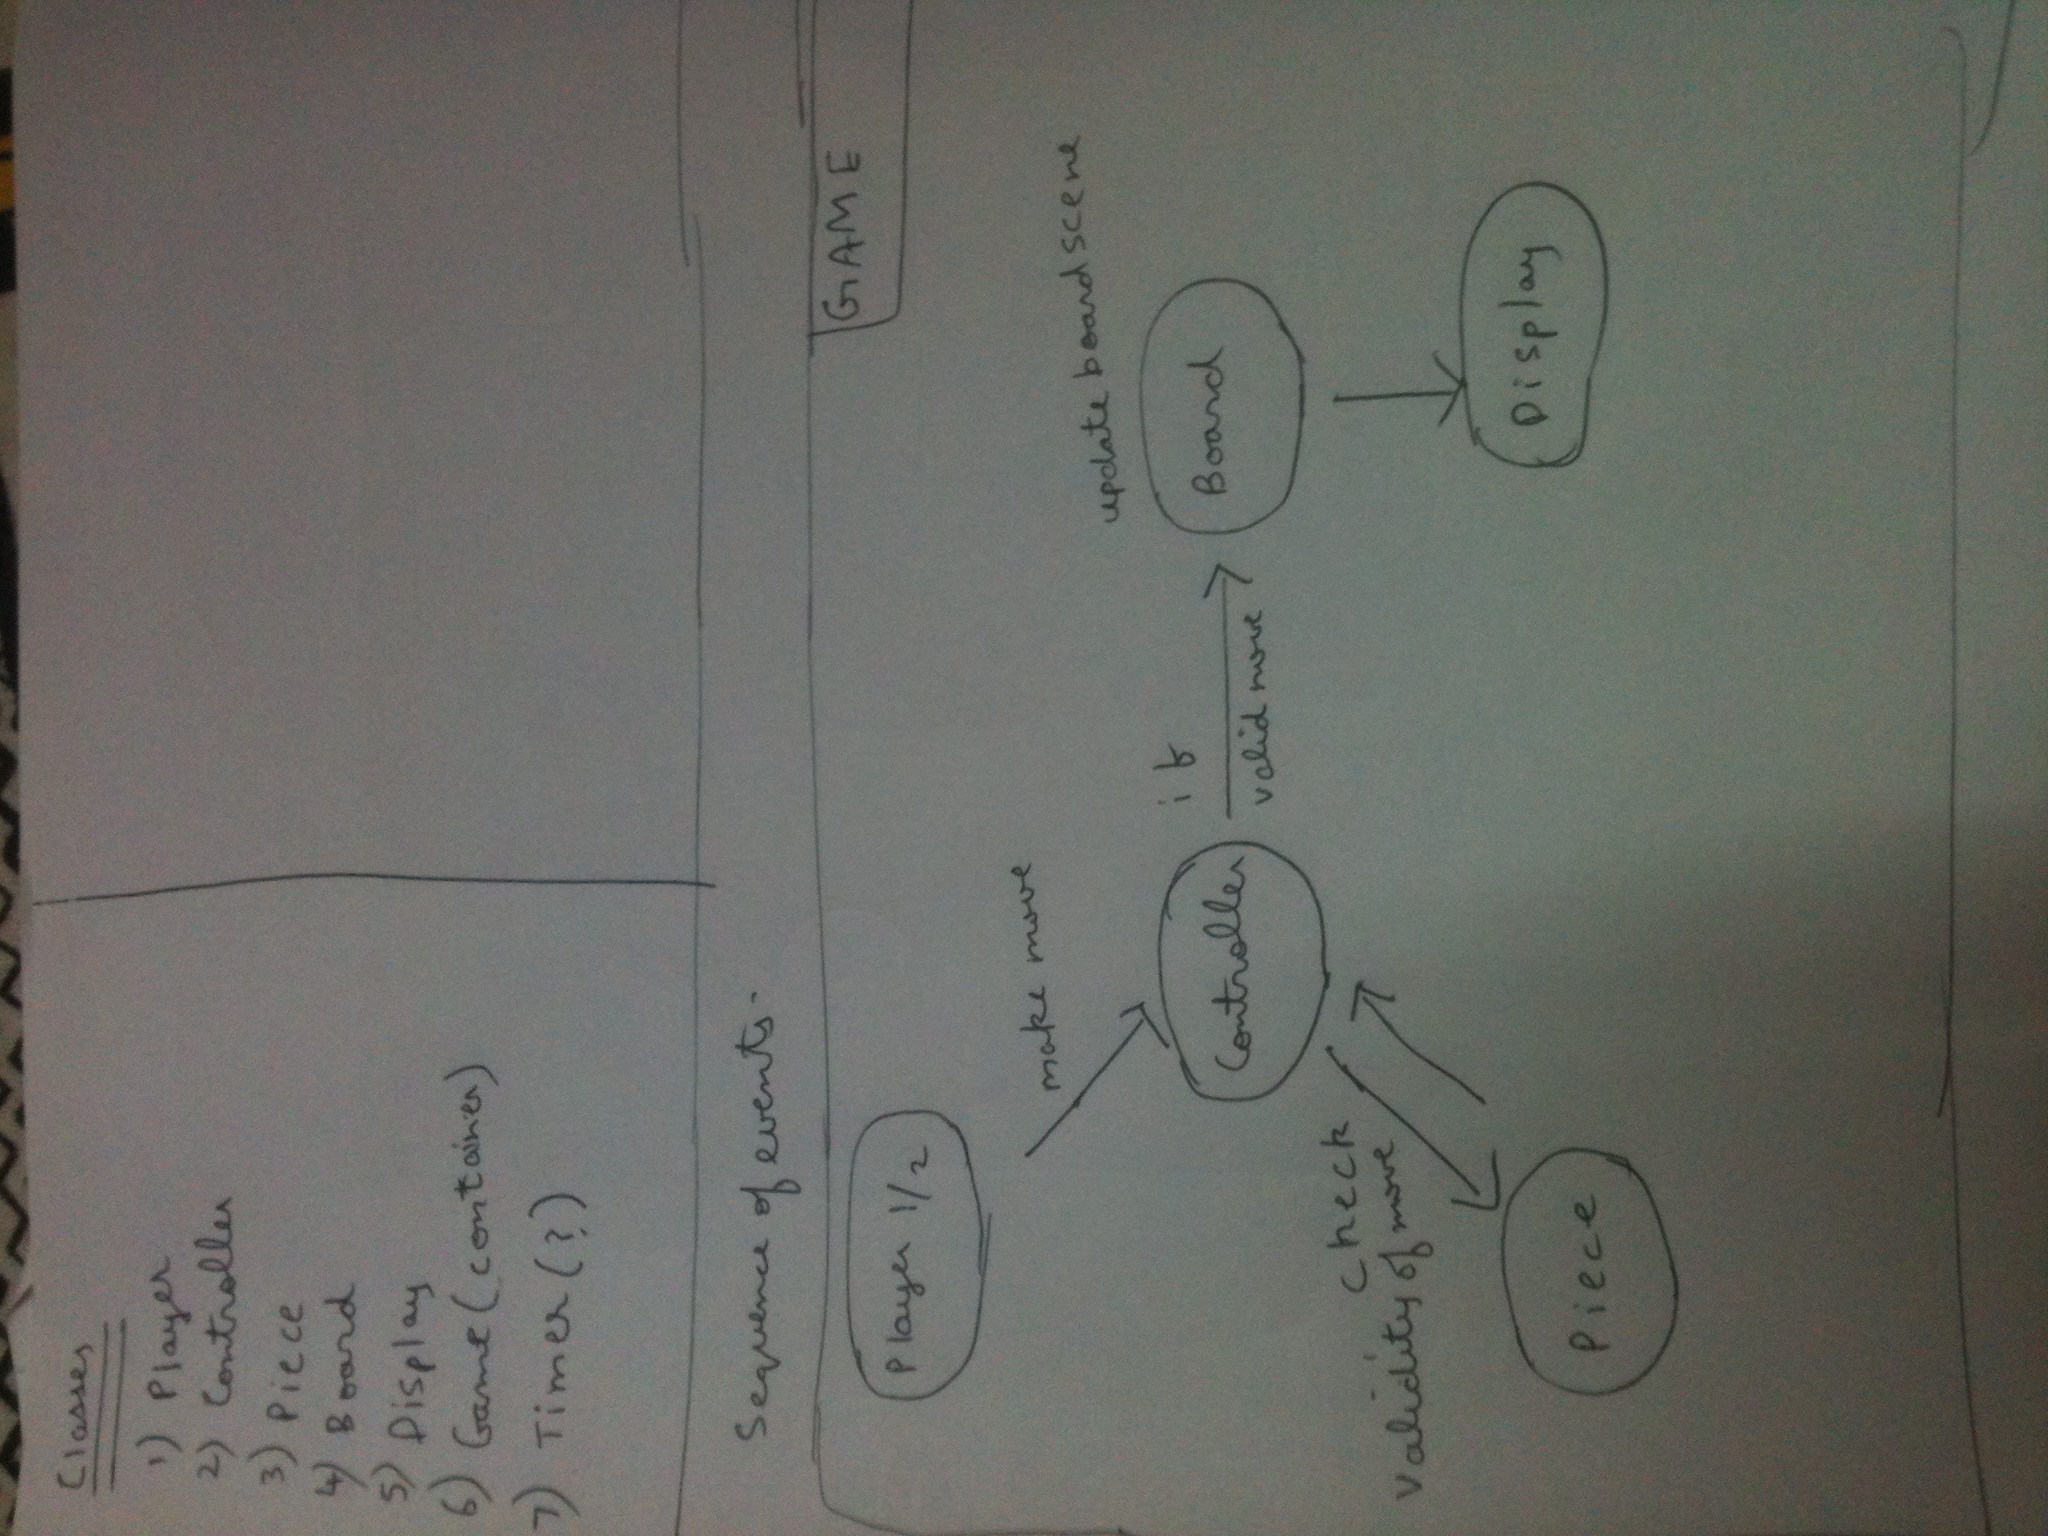 Classes
1) Player
2) Controller
3) Piece
4) Board
5) Display
6) Game (container)
7) Timer (?)
Sequence of events.
GAME
Player 1/2
make move
update board scene
if
valid move
Controller
Board
check
validity of move
Piece
Display